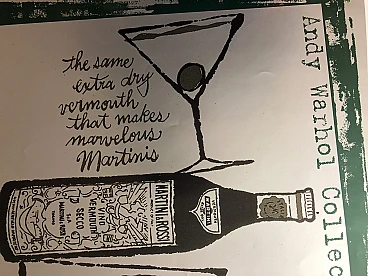 the same
extra dry
vermouth
that makes
marvelous
Martinis
Andy Warhol Collec
MARTINI & ROSSI
VERMOUTH
SECCO